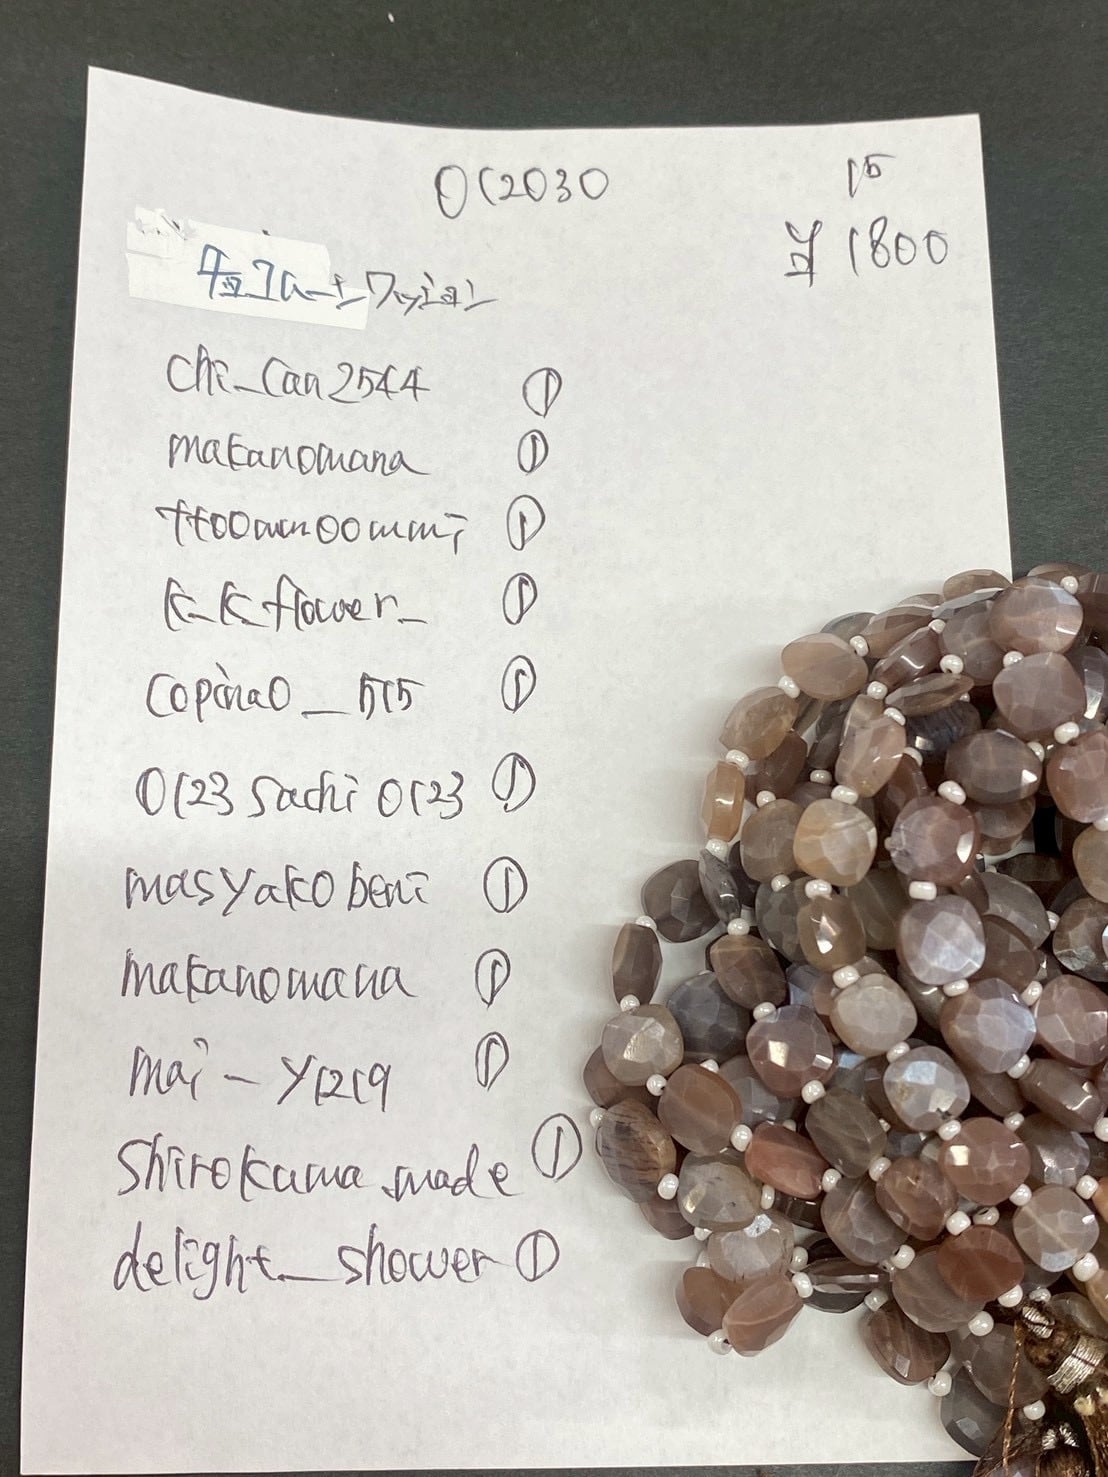 OC2030
15
¥1800
チョコムーンクッション
chi_can2544 ①
makanomana ①
ttoomm00mmi ①
k_k_flower_ ①
copinao_515 ①
OC23 sachi OC23 ①
masyakobeni ①
makanomana ①
mai-y1219 ①
shirokuma.made ①
delight_shower ①